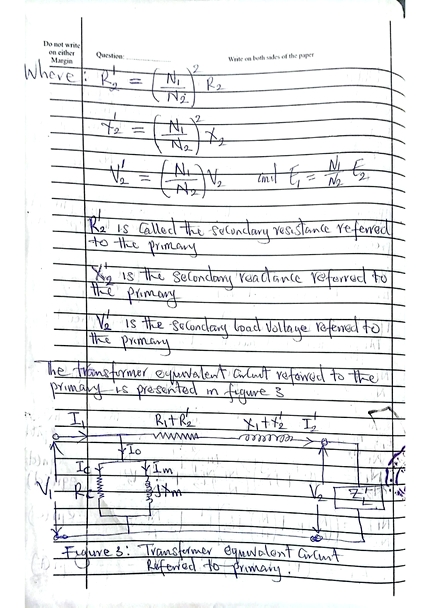 Do not write
on either
Margin
Question:
Write on both sides of the paper
Where: R₂' = (N₁/N₂)² R₂
X₂' = (N₁/N₂)² X₂
V₂' = (N₁/N₂) V₂ and E₁ = N₁/N₂ E₂
R₂' is called the secondary resistance referred
to the primary
X₂' is the secondary reactance referred to
the primary
V₂' is the secondary load voltage referred to
the primary
The transformer equivalent circuit referred to the
primary is presented in figure 3
I₁ R₁+R₂' X₁+X₂' I₂'
I₀
Ic Im
V₁ Rc jXm V₂ ZL'
Figure 3: Transformer equivalent circuit
Referred to primary.